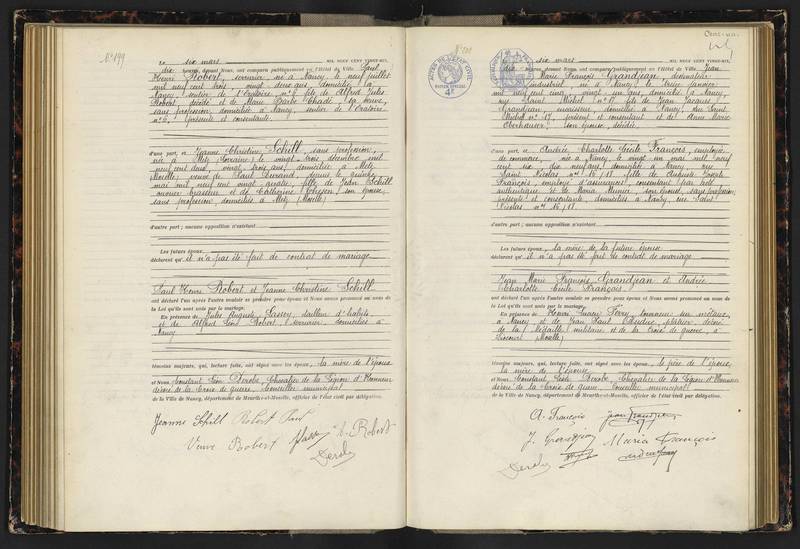 N° 199
Le dix mars MIL NEUF CENT VINGT-SIX,
dix heures, devant Nous, ont comparu publiquement en l'Hôtel de Ville Paul
Henri Robert, serrurier, né à Nancy le neuf juillet
mil neuf cent trois, vingt deux ans, domicilié à
Nancy, sentier de l'Oratoire n° 6, fils de Alfred Jules
Robert, décédé et de Marie Barbe sa veuve,
sans profession, domiciliée à Nancy, sentier de l'Oratoire
n° 6, présente et consentante.
d'une part, et Jeanne Christine Schill, sans profession,
née à Metz (Lorraine) le vingt trois décembre mil
neuf cent deux, vingt trois ans, domiciliée à Metz
(Moselle) veuve de Paul Durand, depuis le quinze
mai mil neuf cent vingt quatre, fille de Jean Schill
ouvrier brasseur et de Catherine son épouse,
sans profession, domiciliés à Metz (Moselle)
d'autre part ; aucune opposition n'existant
Les futurs époux
déclarent qu'il n'a pas été fait de contrat de mariage
Paul Henri Robert et Jeanne Christine Schill
ont déclaré l'un après l'autre vouloir se prendre pour époux et Nous avons prononcé au nom de
la Loi qu'ils sont unis par le mariage.
En présence de Jules Auguste tailleur d'habits
et de Alfred Léon Robert, serrurier, domiciliés à
Nancy
témoins majeurs, qui, lecture faite, ont signé avec les époux, la mère de l'époux
et Nous, Constant Léon Chevalier de la Légion d'Honneur
décoré de la Croix de guerre, Conseiller municipal
de la Ville de Nancy, département de Meurthe-et-Moselle, officier de l'état civil par délégation.
Jeanne Schill Robert Paul
Veuve Robert A. Robert
N° 200
Le dix mars MIL NEUF CENT VINGT-SIX,
dix heures, devant Nous, ont comparu publiquement en l'Hôtel de Ville Jean
Marie François Grandjean, dessinateur
industriel, né à Nancy, le treize janvier
mil neuf cent cinq, vingt un ans, domicilié à Nancy,
rue Saint Michel n° 17, fils de Jean Jacques
Grandjean, domicilié à Nancy, rue Saint
Michel n° 17, présent et consentant et de Anne Marie
Oberhauser, son épouse, décédée.
d'une part, et Andrée Charlotte Cécile François, employée
de commerce, née à Nancy le vingt un mai mil neuf
cent six, dix neuf ans, domiciliée à Nancy, rue
Saint Nicolas nos 16/18, fille de Auguste
François, employé d'assurances, consentant par acte
authentique et de Maria son épouse, sans profession,
présente et consentante, domiciliés à Nancy, rue Saint
Nicolas nos 16/18.
d'autre part ; aucune opposition n'existant
Les futurs époux, la mère de la future épouse
déclarent qu'il n'a pas été fait de contrat de mariage
Jean Marie François Grandjean et Andrée
Charlotte Cécile François
ont déclaré l'un après l'autre vouloir se prendre pour époux et Nous avons prononcé au nom de
la Loi qu'ils sont unis par le mariage.
En présence de Henri Ferry, tourneur sur métaux,
à Nancy et de Jean Paul plâtrier, décoré
de la Médaille militaire et de la Croix de guerre, à
(Moselle)
témoins majeurs, qui, lecture faite, ont signé avec les époux, le père de l'époux,
la mère de l'épouse
et Nous, Constant Léon Chevalier de la Légion d'Honneur
décoré de la Croix de guerre, Conseiller municipal
de la Ville de Nancy, département de Meurthe-et-Moselle, officier de l'état civil par délégation.
A. François Jean Grandjean
J. Grandjean Maria François